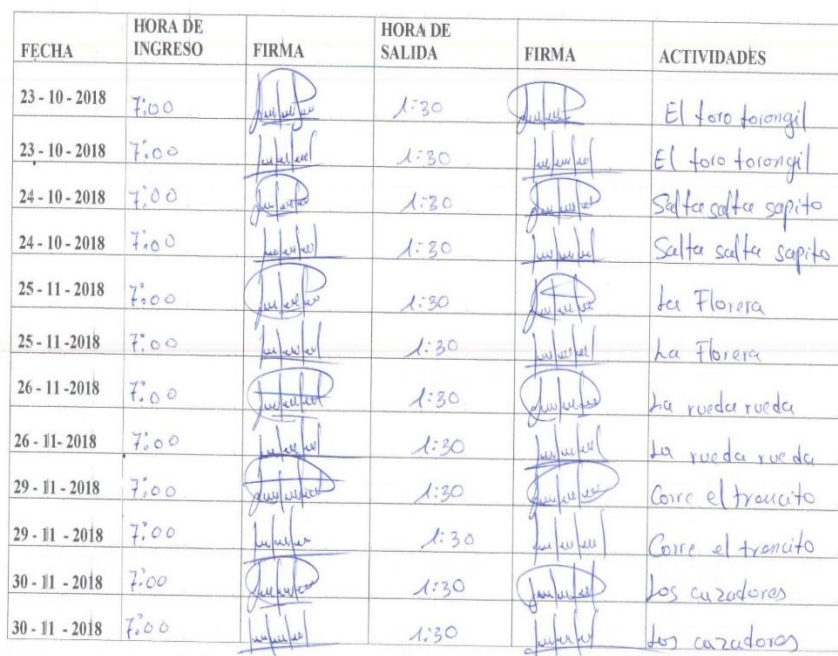 FECHA HORA DE INGRESO FIRMA HORA DE SALIDA FIRMA ACTIVIDADES
23 - 10 - 2018 7:00 1:30 El toro torongil
23 - 10 - 2018 7:00 1:30 El toro torongil
24 - 10 - 2018 7:00 1:30 Salta salta sapito
24 - 10 - 2018 7:00 1:30 Salta salta sapito
25 - 11 - 2018 7:00 1:30 La Florera
25 - 11 - 2018 7:00 1:30 La Florera
26 - 11 -2018 7:00 1:30 La rueda rueda
26 - 11- 2018 7:00 1:30 La rueda rueda
29 - 11 - 2018 7:00 1:30 Corre el trencito
29 - 11 - 2018 7:00 1:30 Corre el trencito
30 - 11 - 2018 7:00 1:30 Los cazadores
30 - 11 - 2018 7:00 1:30 Los cazadores